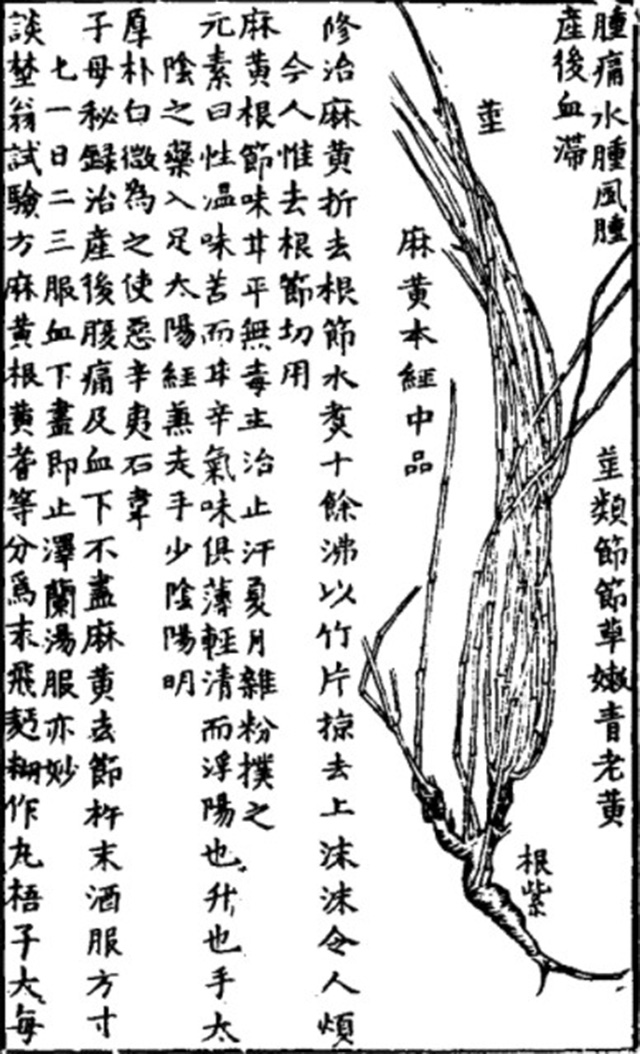 腫痛水腫風腫
產後血滯
莖類節節草嫩青老黃
莖
根紫
麻黃本經中品
修治麻黃折去根節水煑十餘沸以竹片掠去上沫沫令人煩
今人惟去根節切用
麻黃根節味甘平無毒主治止汗夏月雜粉撲之
元素曰性溫味苦而甘辛氣味俱薄輕清而浮陽也升也手太
陰之藥入足太陽經兼走手少陰陽明
厚朴白微為之使惡辛夷石韋
子母秘錄治產後腹痛及血下不盡麻黃去節杵末酒服方寸
七一日二三服血下盡即止澤蘭湯服亦妙
談埜翁試驗方麻黃根黃蓍等分爲末飛麪糊作丸梧子大每